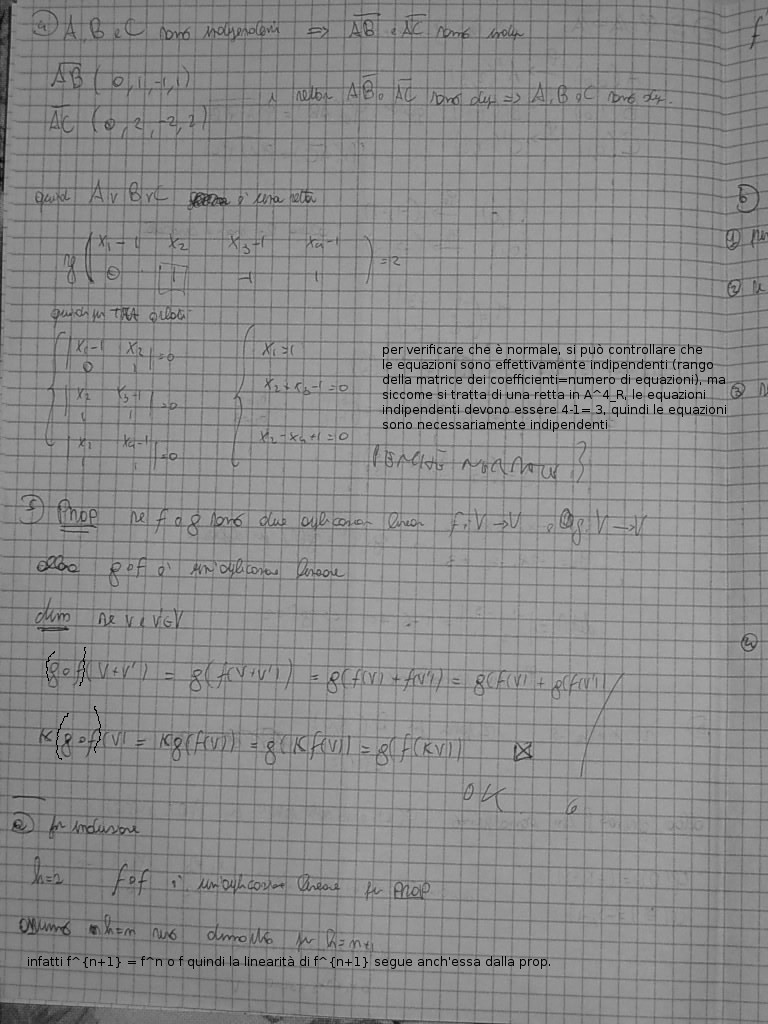 a) A, B e C sono indipendenti => AB e AC sono indip
AB ( 0, 1, -1, 1 )
i vettori AB e AC sono dip => A, B e C sono dip.
AC ( 0, 2, -2, 2 )
quindi A v B v C è una retta
rg ( x1-1 x2 x3-1 x4-1
0 1 -1 1 ) = 2
quindi per TRA orlati
| x1-1 x2 | = 0
0 1
x1 = 1
per verificare che è normale, si può controllare che
le equazioni sono effettivamente indipendenti (rango
della matrice dei coefficienti=numero di equazioni), ma
siccome si tratta di una retta in A^4_R, le equazioni
indipendenti devono essere 4-1= 3, quindi le equazioni
sono necessariamente indipendenti
| x2 x3-1 | = 0
x2 + x3 - 1 = 0
| x2 x4-1 | = 0
x2 - x4 + 1 = 0
PROP se f e g sono due applicazioni lineari f: V → V e g: V → V
allora g∘f è un'applicazione lineare
dim se v e v' ∈ V
(g∘f)(v+v') = g(f(v+v')) = g(f(v) + f(v')) = g(f(v) + g(f(v')
K(g∘f)(v) = Kg(f(v)) = g(Kf(v)) = g(f(Kv))
OK 6
e) per induzione
h=2 f∘f è un'applicazione lineare per PROP
h=n dimostro per h=n+1
infatti f^{n+1} = f^n o f quindi la linearità di f^{n+1} segue anch'essa dalla prop.